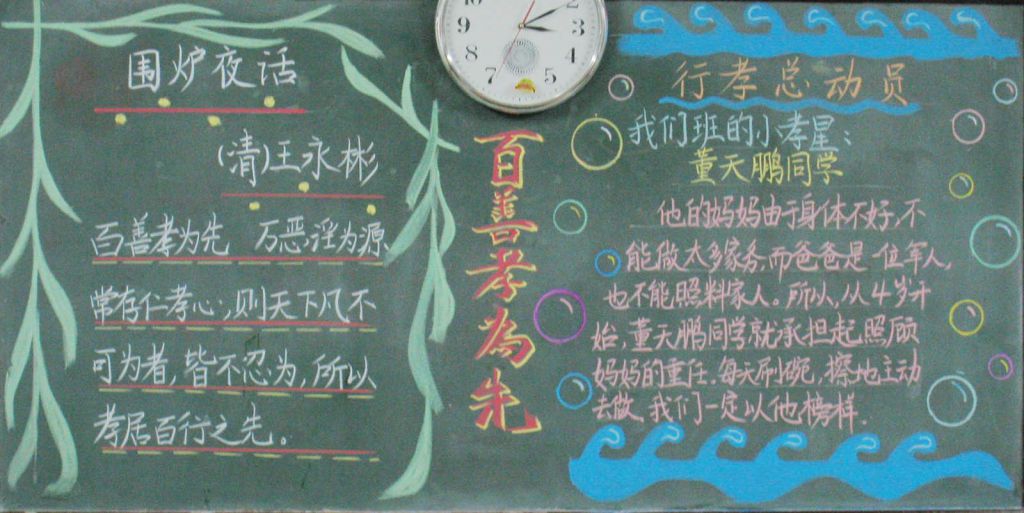 围炉夜话
(清)王永彬
百善孝为先 万恶淫为源
常存仁孝心,则天下凡不
可为者,皆不忍为,所以
孝居百行之先。
10
9
8
7
5
4
3
2
百善孝為先
行孝总动员
我们班的小孝星:
董天鹏同学
他的妈妈由于身体不好,不
能做太多家务,而爸爸是一位军人,
也不能照料家人。所以,从4岁开
始,董天鹏同学就承担起照顾
妈妈的重任.每天刷碗,擦地主动
去做,我们一定以他榜样.